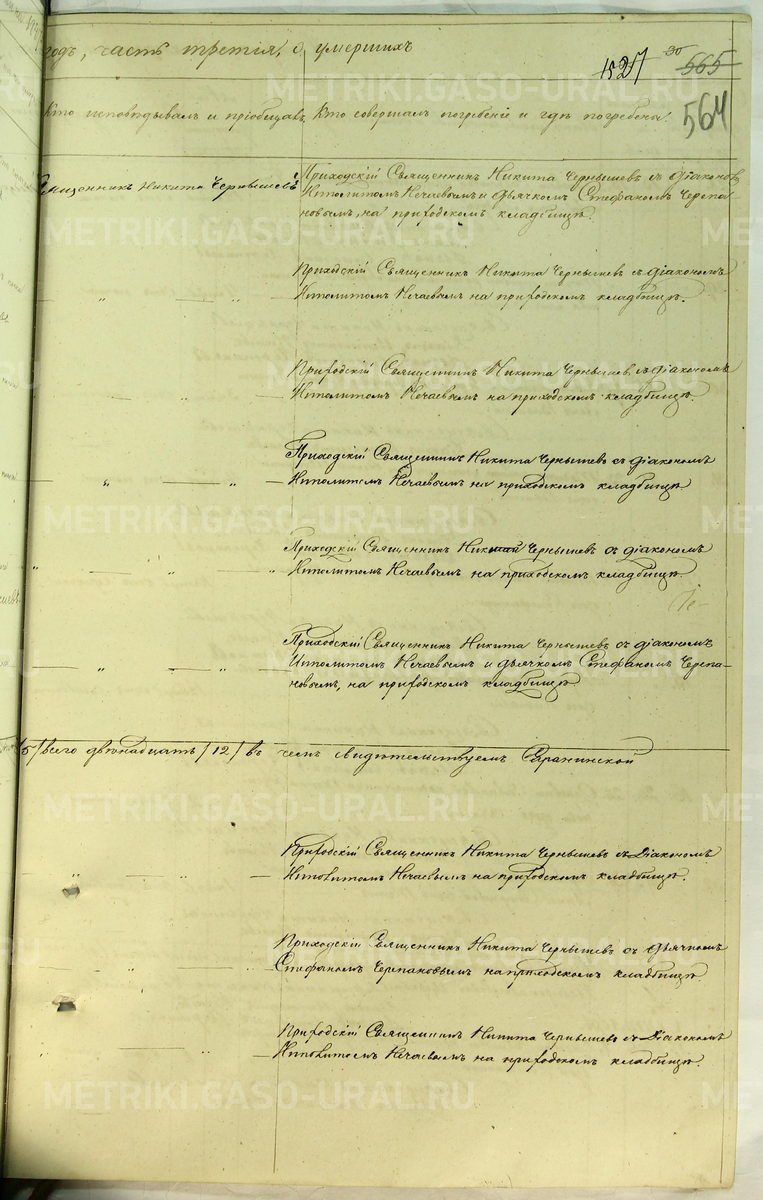 годъ, часть третія, о умершихъ
1527 30 565
564
Кто исповѣдывалъ и пріобщалъ. Кто совершалъ погребеніе и гдѣ погребены.
Священникъ Никита Чернышевъ
Приходскій Священникъ Никита Чернышевъ съ діаконом
Ипполитомъ Нечаевымъ и дьячкомъ Стефаномъ Черепа-
новымъ, на приходскомъ кладбищѣ.
Приходскій Священникъ Никита Чернышев съ діакономъ
" — " — Ипполитомъ Нечаевымъ на приходскомъ кладбищѣ.
Приходскій Священникъ Никита Чернышев съ діакономъ
— Ипполитомъ Нечаевымъ на приходскомъ кладбищѣ.
Приходскій Священникъ Никита Чернышевъ съ діакономъ
— " — " — Ипполитомъ Нечаевымъ на приходскомъ кладбищѣ.
Приходскій Священникъ Никитай Чернышев съ діакономъ
" — " — " Ипполитомъ Нечаевымъ на приходскомъ кладбищѣ.
Приходскій Священникъ Никита Чернышевъ съ діакономъ
— " — " — Ипполитомъ Нечаевымъ и дьячкомъ Стефаномъ Черепа-
новымъ, на приходскомъ кладбищѣ
/5/ всего двѣнадцать /12/ въ чемъ свидѣтельствуемъ Саранинской
Приходскій Священникъ Никита Чернышевъ съ Діакономъ
" — " — Ипполитомъ Нечаевымъ на приходскомъ кладбищѣ.
Приходскій Священникъ Никита Чернышевъ съ дьячкомъ
Стефаномъ Черепановымъ на приходскомъ кладбищѣ
Приходскій Священникъ Никита Чернышевъ съ Діакономъ
— Ипполитомъ Нечаевымъ на приходскомъ кладбищѣ.
METRIKI.GASO-URAL.RU